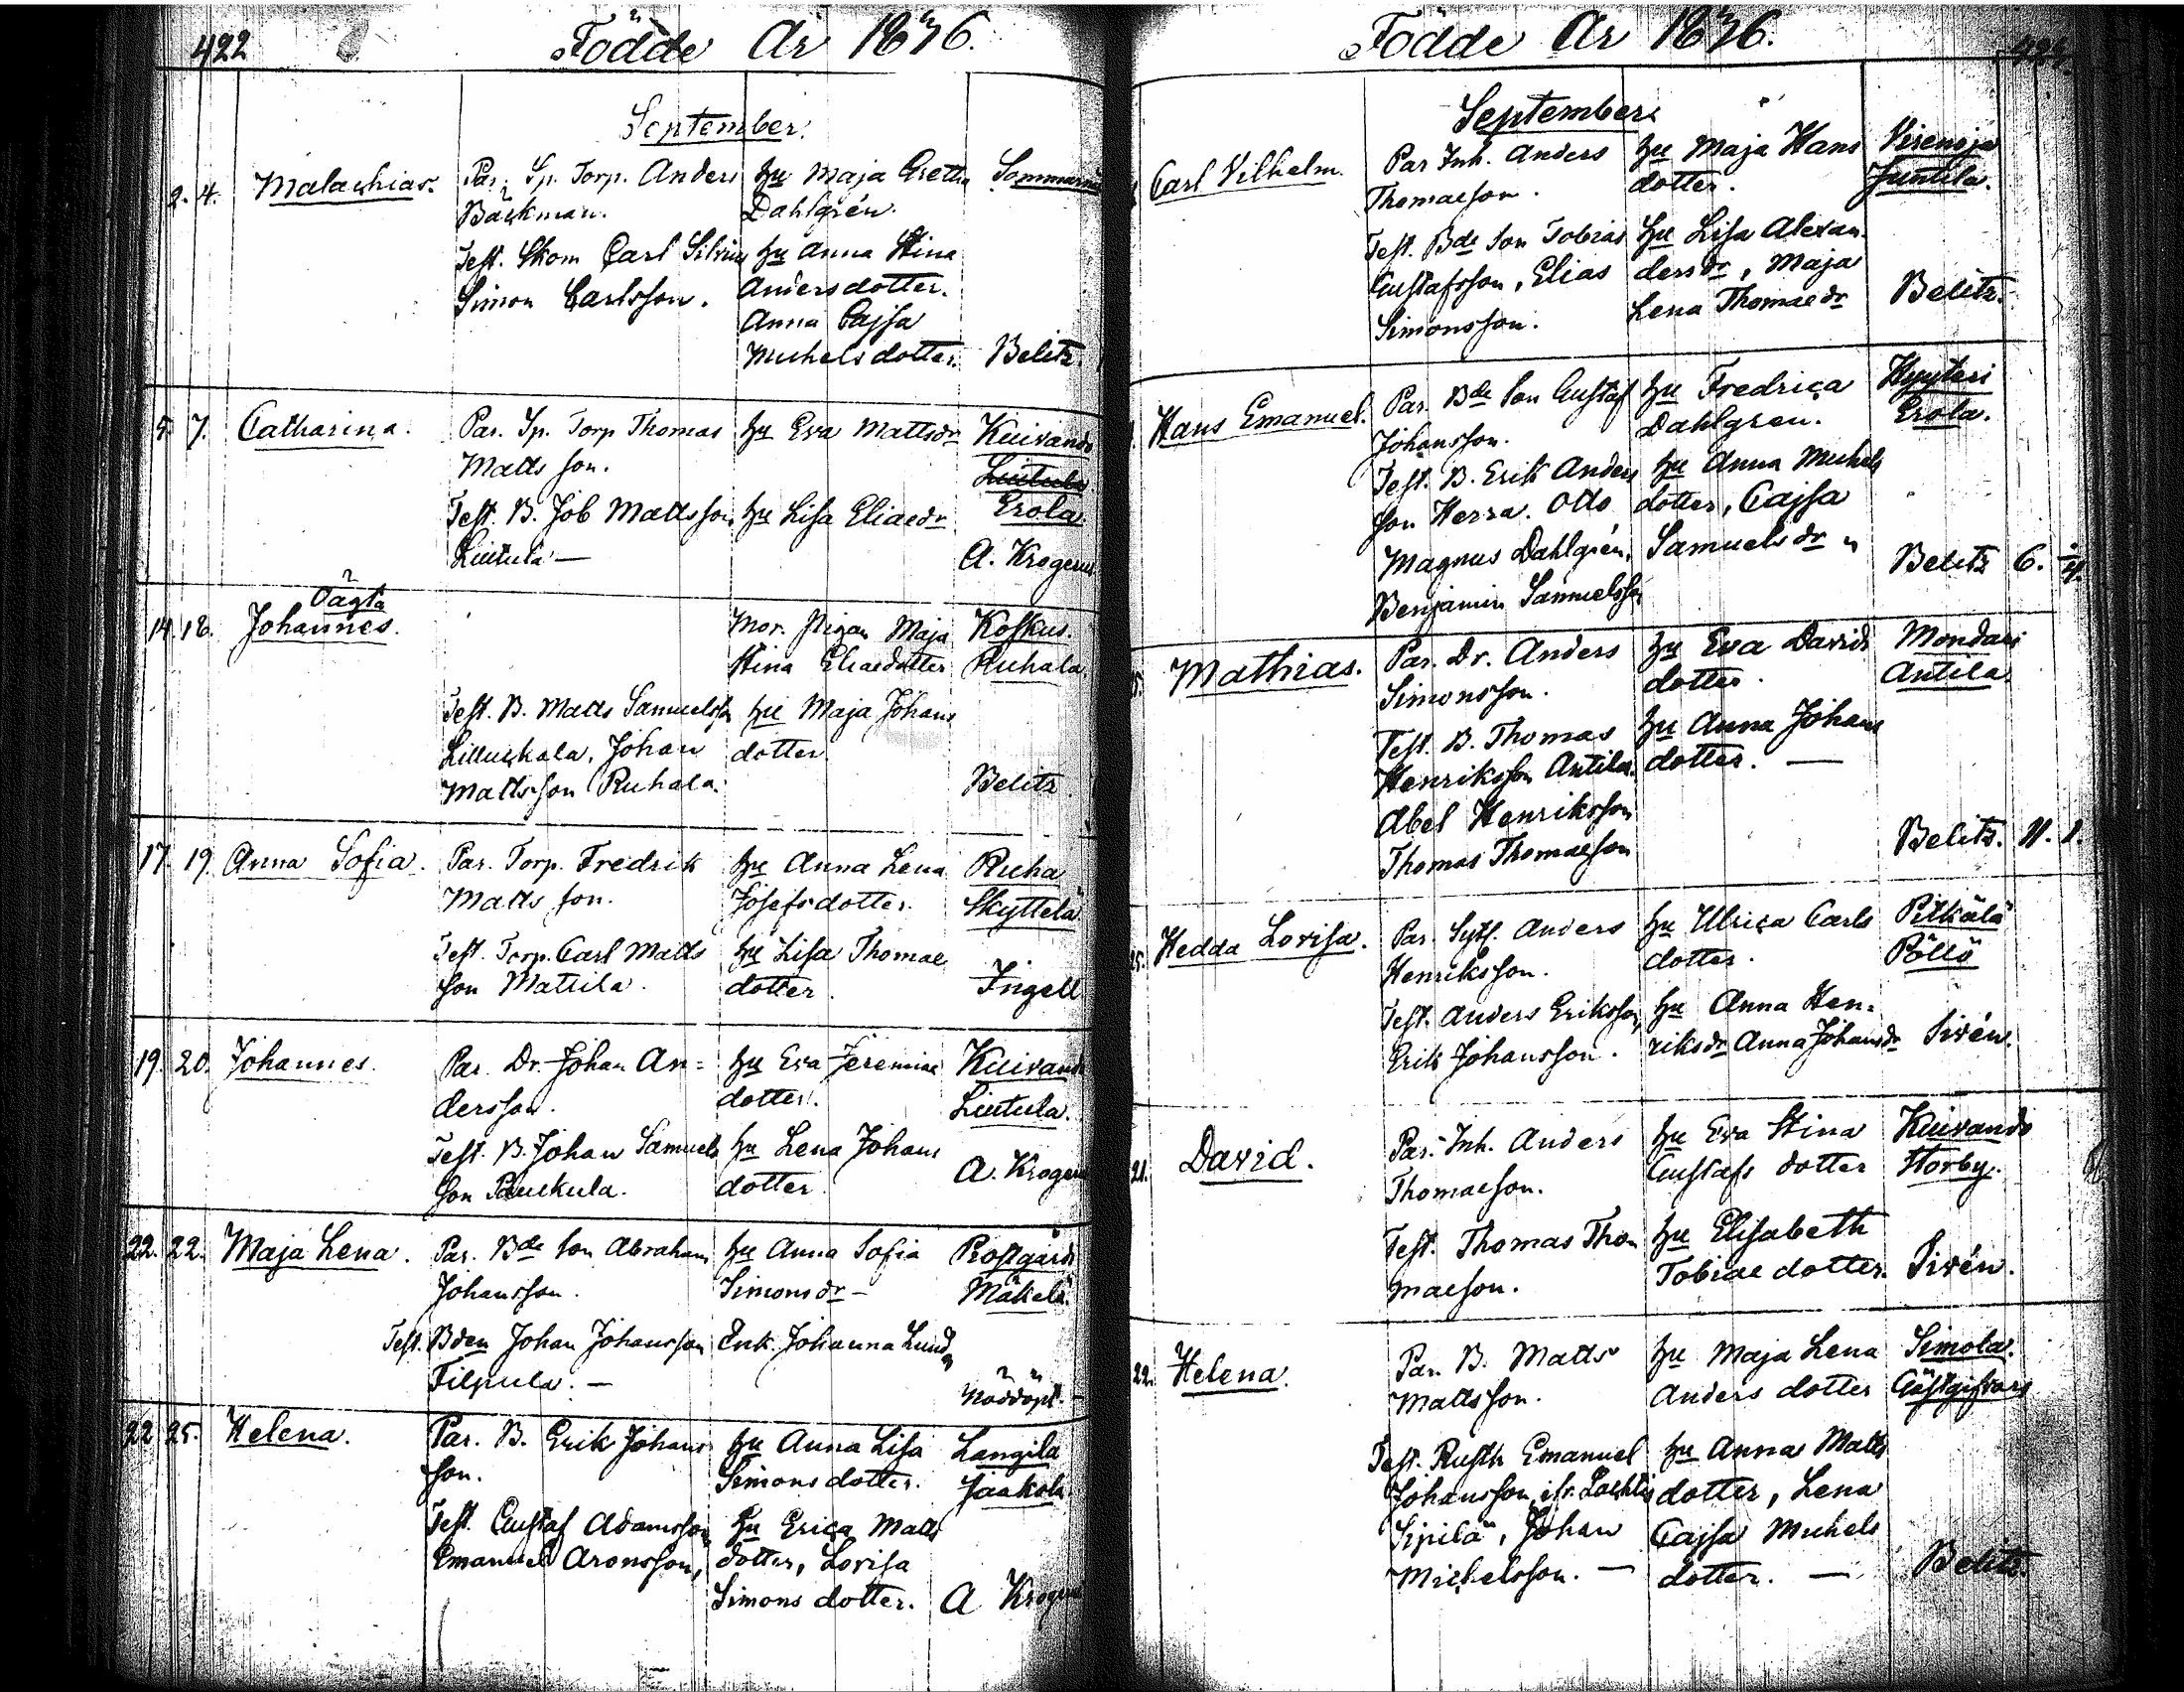 422 Födde År 1836.
September.
2. 4. Malachias. Par. Sp. Torp. Anders hu Maja Greta
Backman. Dahlgrén.
Test. Skom Carl Silvius hu Anna Stina
Simon Carlsson. Andersdotter.
Anna Cajsa
Michelsdotter. Belitz.
5. 7. Catharina. Par. Sp. Torp Thomas hu Eva Mattsdr
Matts son.
Test. B. Job Mattsson hu Lisa Eliaedr Erola.
Liutula — A. Krogerus
Oägta
14. 18. Johannes. Mor. Pigan Maja Koskus.
Stina Eliaedotter Ruhala.
Test. B. Matts Samuelsson hu Maja Johans
Johan dotter
Mattsson Ruhala. Belitz
17. 19. Anna Sofia. Par. Torp. Fredrik hu Anna Lena Ruha
Matts son. Josefsdotter. Skyttelä
Test. Torp. Carl Matts hu Lisa Thomae
son Mattila. dotter. Ingell
19. 20. Johannes. Par. Dr. Johan An= hu Eva Jeremiae
dersson. dotter. Liutula.
Test. B. Johan Samuels hu Lena Johans
son dotter A. Krogerus
22. 22. Maja Lena. Par. Bde son Abraham hu Anna Sofia Prostgårds
Johansson. Simonsdr — Mäkelä.
Test. Bden Johan Johansson Enk. Johanna
Filpula. — Nöddöpt. —
22 25. Helena. Par. B. Erik Johans hu Anna Lisa Langila
son. Simonsdotter. Jaakola
Test. Gustaf Adamsson hu Erica Matts
Emanuel Aronsson, dotter, Lovisa
Simonsdotter. A Krogerus
Födde År 1836.
September
Carl Vilhelm. Par Inh. Anders hu Maja Hans
Thomaeson. dotter. Juntila.
Test. Bde son Tobias hu Lisa Alexan.
Gustafsson, Elias dersdr, Maja
Simonsson. Lena Thomaedr Belitz.
Hans Emanuel. Par. Bde son Gustaf hu Fredrica Hyyteri
Johansson. Dahlgren. Erola.
Test. B. Erik Anders hu Anna Michels
son Herra. Otto dotter, Cajsa
Magnus Dahlgrén, Samuelsdr
Benjamin Samuelsson Belitz 6.
Mathias. Par. Dr. Anders hu Eva Davids
Simonsson. dotter. Antila.
Test. B. Thomas hu Anna Johans
Henriksson Antila. dotter. —
Abel Henriksson
Thomas Thomaeson Belitz. 11. 1.
Hedda Lovisa. Par. Anders hu Ulrica Carls Pitkälä
Henriksson. dotter. Pöllö
Test. Anders Eriksson, hu Anna Hen=
Erik Johansson. riksdr Anna Johansdr Sirén.
21. David. Par. Inh. Anders hu Eva Stina Kuivando
Thomaeson. Gustafs dotter Storby.
Test. Thomas Tho hu Elisabeth
maeson. Tobiae dotter. Sirén.
22. Helena. Par. B. Matts hu Maja Lena Simola.
Mattsson. Anders dotter Gästgifvars
Test. Rusth Emanuel hu Anna Matts
Johansson ifr. dotter, Lena
Sipilä, Johan Cajsa Michels
Michelsson. — dotter. — Belitz.